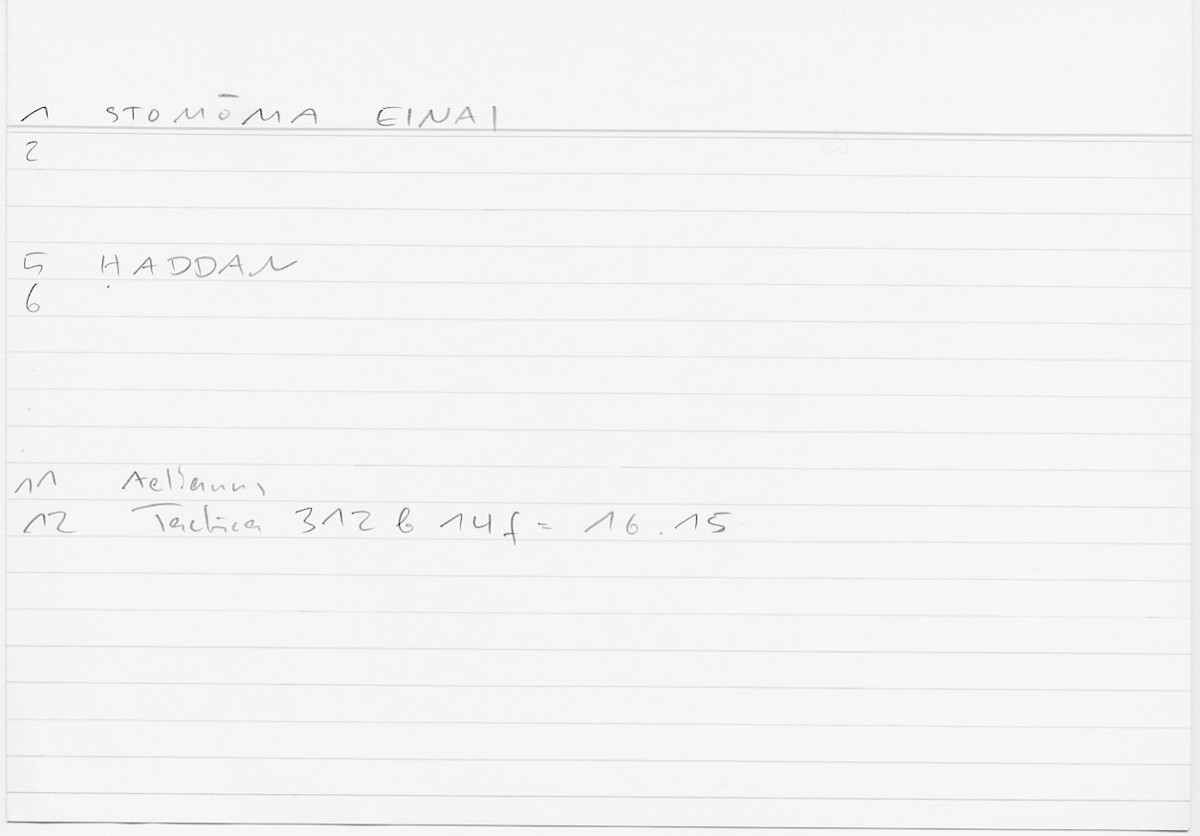 1 STOMŌMA EINAI
2
5 ḤADDAN
6
11 Aelianus
12 Tactica 312 b 14f = 16.15